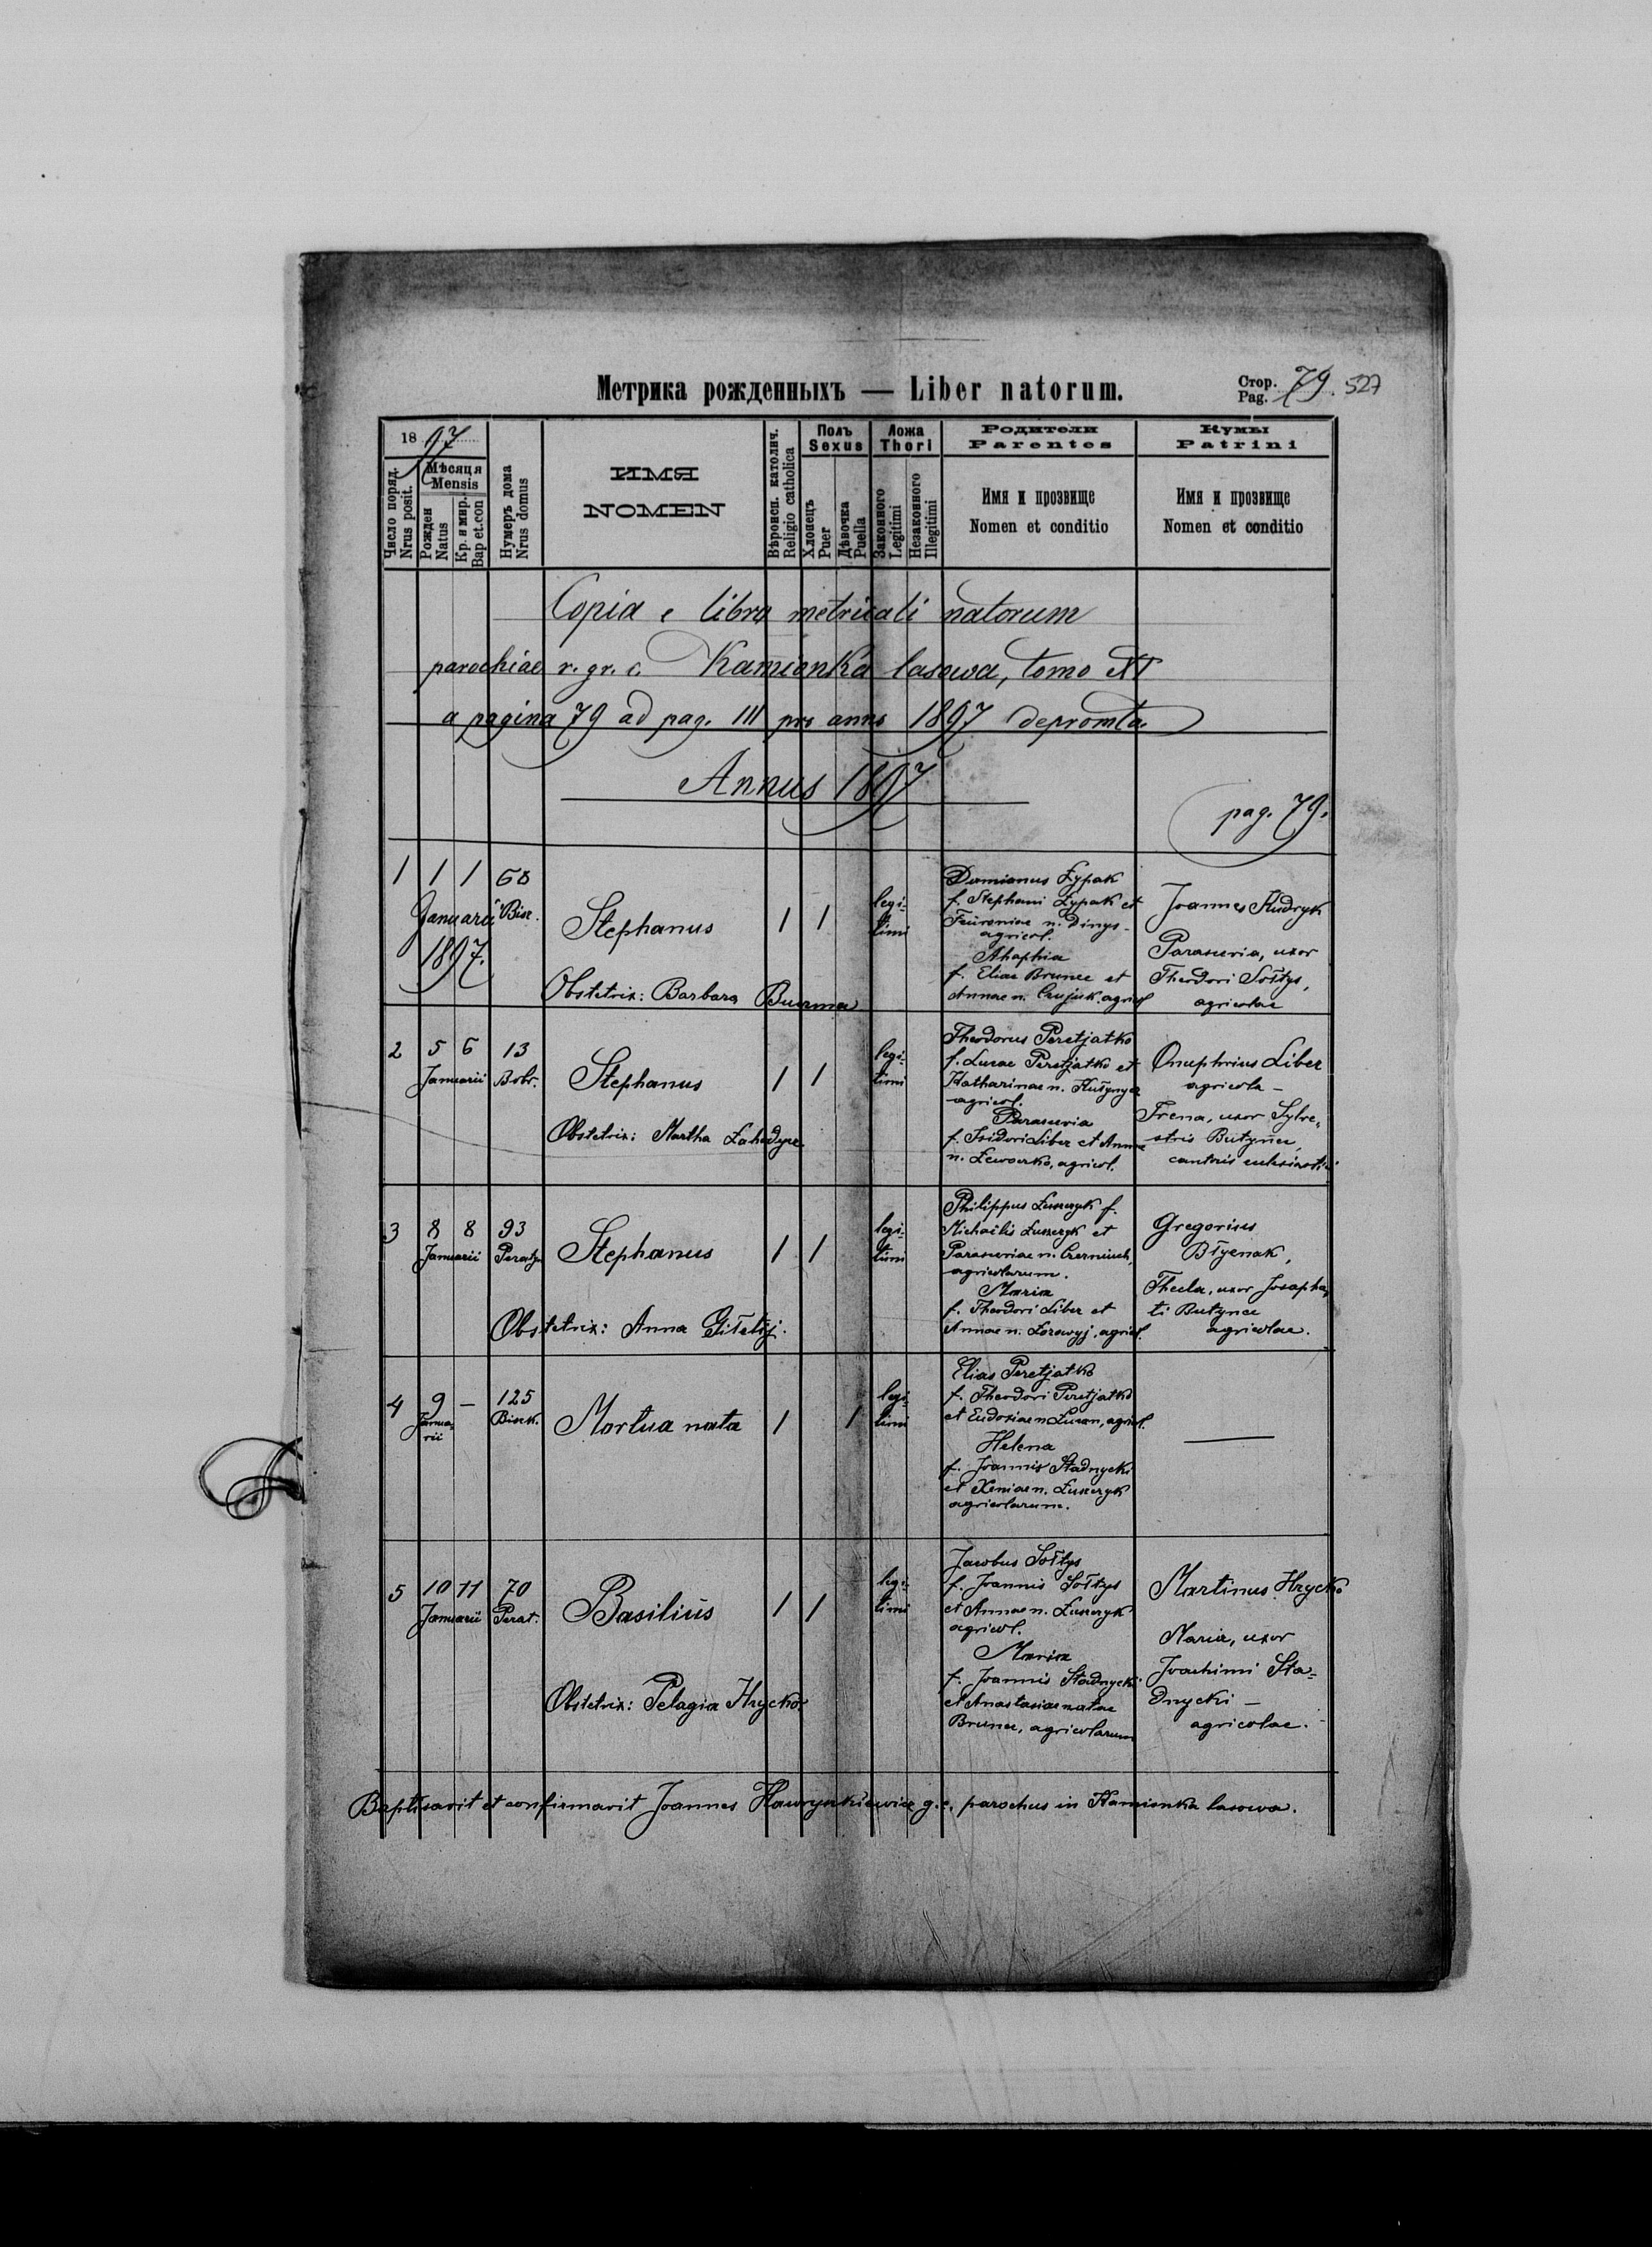 Метрика рожденныхъ — Liber natorum.
Стор.
Pag. 79. 527
18 97
Число поряд.
Nrus posit.
Мѣсяця
Mensis
Рожден
Natus
Кр. и мир.
Bap et.con
Нумеръ дома
Nrus domus
ИМЯ
NOMEN
Вѣроисп. католич.
Religio catholica
Полъ
Sexus
Хлопецъ
Puer
Дѣвочка
Puella
Ложа
Thori
Законного
Legitimi
Незаконного
Illegitimi
Родители
Parentes
Имя и прозвище
Nomen et conditio
Кумы
Patrini
Имя и прозвище
Nomen et conditio
Copia e libro metricali natorum
parochiae r. gr. c. Kamionka lasowa, tomo XI
a pagina 79 ad pag. 111 pro anno 1897 depromta.
Annus 1897
pag. 79.
1 1 1 68
Januarii Bisc.
1897.
Stephanus 1 1
legi-
timi
Obstetrix: Barbara Buczma
Damianus Łypak
f. Stephani Łypak et
n. Dinys-
agricol.
Ahaphia
f. Eliae Brunec et
Annae n. agricol
Joannes Kudryk
Parascevia, uxor
Theodori Sołtys,
agricolae
2 5 6 13
Januarii Bobr.
Stephanus 1 1
legi-
timi
Obstetrix: Martha
Theodorus Peretjatko
f. Lucae Peretjatko et
Katharinae n.
agricol.
Parascevia
f. Isidori Liber et Annae
n. agricol.
Onuphrius Liber
agricola -
Irena, uxor Sylve-
stris Butynec,
cantoris ecclesiastici
3 8 8 93
Januarii Peraty.
Stephanus 1 1
legi-
timi
Obstetrix: Anna
Philippus Łuszczyk f.
Michaëlis Łuszczyk et
Parasceviae n.
agricolarum.
Maria
f. Theodori Liber et
Annae n. Łozowyj, agricol.
Gregorius
Błyenak,
Thecla, uxor Josapha-
ti Butynec
agricolae.
4 9 — 125
Janua-
rii
Bisck.
Mortua nata 1 1
legi-
timi
Elias Peretjatko
f. Theodori Peretjatko
et Eudoxiae n. agricol.
Helena
f. Joannis Stadnycki
et Xeniae n. Łuszczyk
agricolarum.
5 10 11 70
Januarii Perat.
Basilius 1 1
legi-
timi
Obstetrix: Pelagia Hrycko.
Jacobus Sołtys
f. Joannis Sołtys
et Annae n. Łuszczyk
agricol.
Maria
f. Joannis Stadnycki
et Anastasiae natae
Brunec, agricolarum
Martinus Hrycko
Maria, uxor
Joachimi Sta-
dnycki —
agricolae.
Baptisavit et confirmavit Joannes Hawrynkiewicz g. c. parochus in Kamionka lasowa.